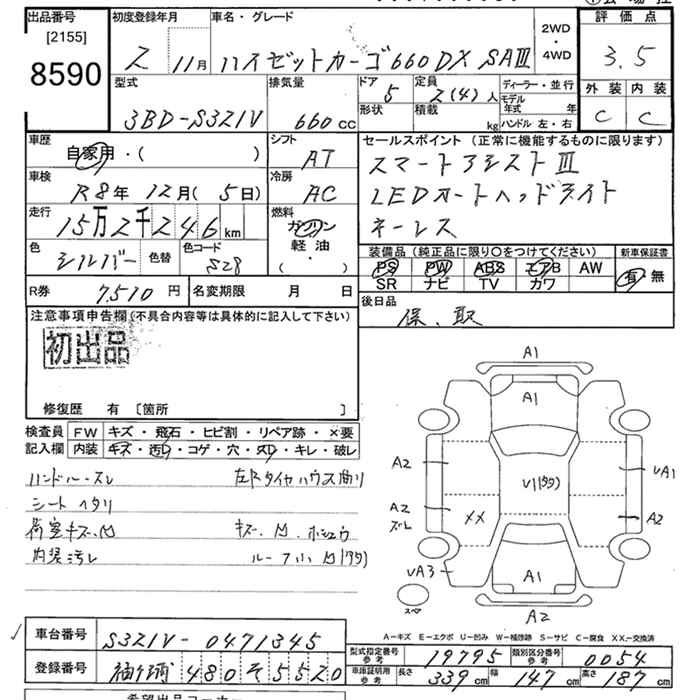 出品番号 初度登録年月 車名・グレード 2WD・4WD 評価点
[2155]
8590 2 11月 ハイゼットカーゴ660DX SAⅢ 3.5
型式 排気量 ドア 定員 ディーラー・並行 外装 内装
3BD-S321V 660cc 5 2(4)人 モデル年式 年 C C
形状 積載 kg ハンドル 左・右
車歴 シフト セールスポイント(正常に機能するものに限ります)
自家用・( ) AT スマートアシストⅢ
車検 冷房
R8年12月(5日) AC LEDオートヘッドライト
走行 燃料
15万2千246km ガソリン キーレス
色 色替 色コード 軽油 装備品(純正品に限り〇をつけてください) 新車保証書
シルバー S28 ( ・ ) PS PW ABS エアB AW 有 無
SR ナビ TV カワ
R券 7,510円 名変期限 月 日 後日品
保、取
注意事項申告欄(不具合内容等は具体的に記入して下さい)
初出品
修復歴 有 〔箇所 〕
検査員 FW キズ・飛石・ヒビ割・リペア跡・×要
記入欄 内装 キズ・汚レ・コゲ・穴・スレ・キレ・破レ
ハンドル・スレ
シート ヘタリ
荷室キズ.凹 キズ.凹.
内装汚レ
A1
A1
A2 V1(タタ) UA1
A2 スレ XX A2
UA3 A1
スペア A2
A-キズ E-エクボ U-凹み W-補修跡 S-サビ C-腐食 XX-交換済
車台番号 S321V-0471345
型式指定番号 参考 19795 類別区分番号 参考 0054
登録番号 480 そ 5520
車庫証明用 参考 長さ 339cm 幅 147cm 高さ 187cm